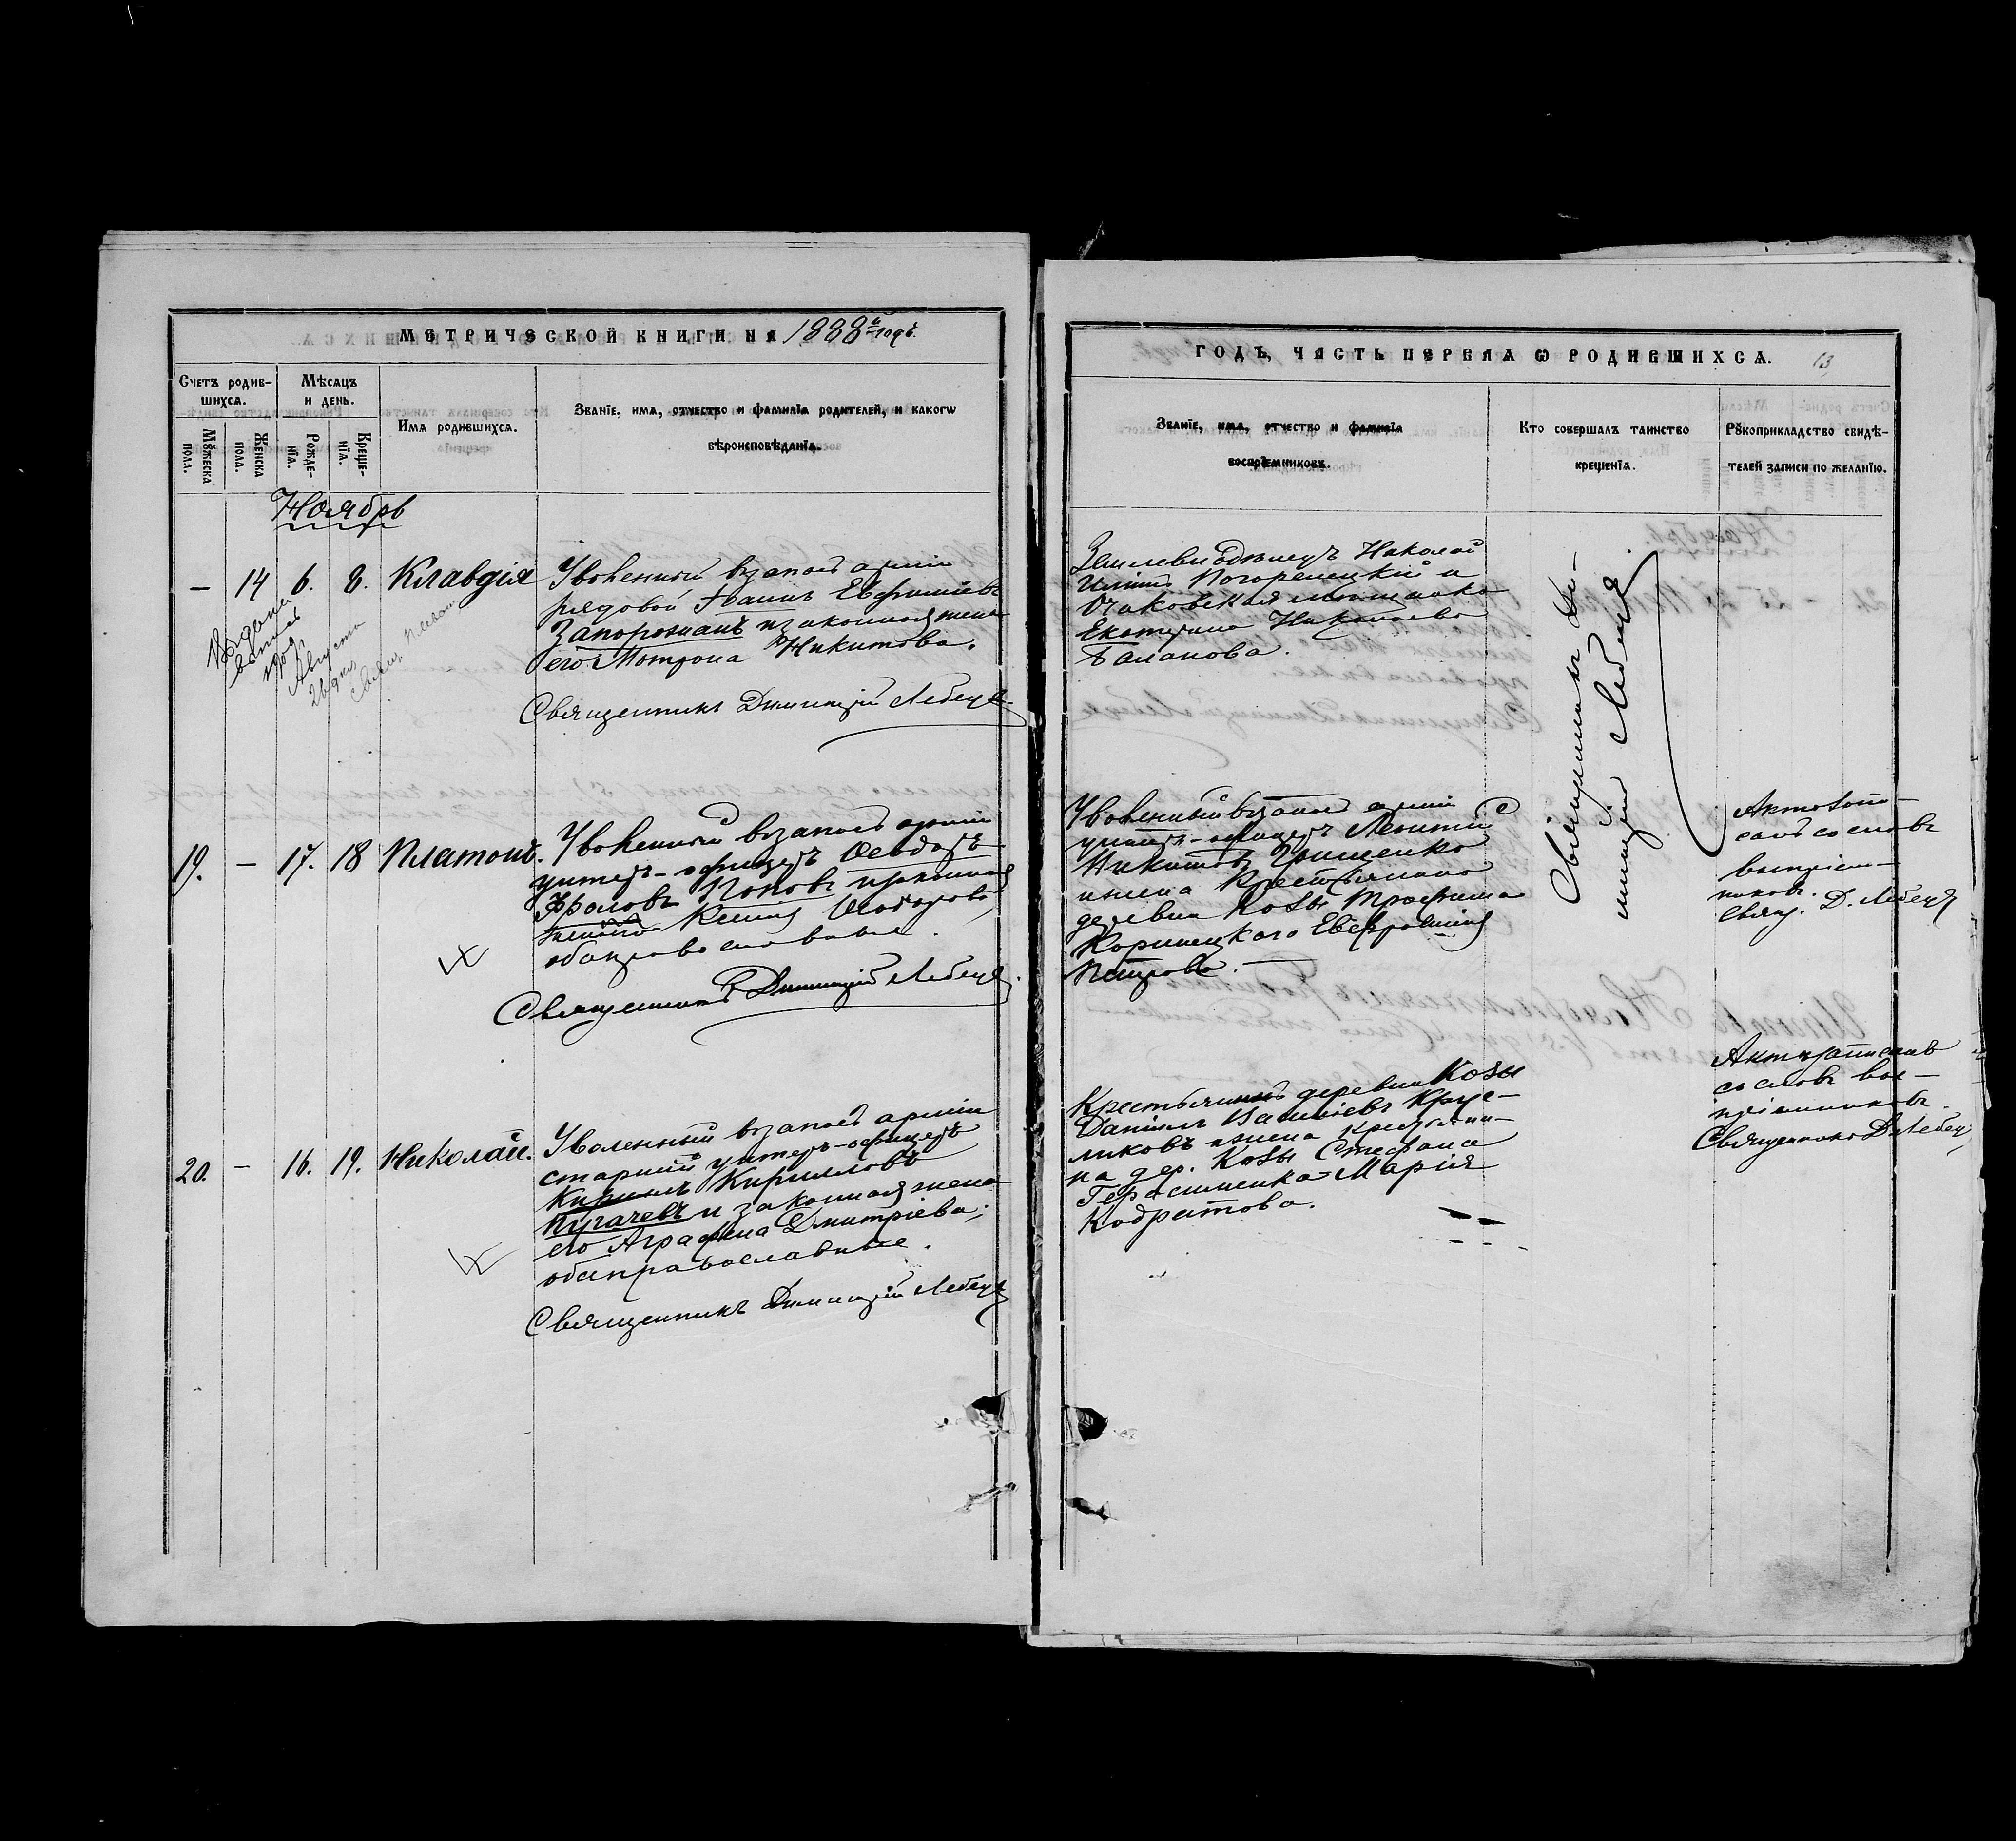 МЕТРИЧЕСКОЙ КНИГИ НА 1888й годъ.
Счетъ родив-
шихся.
Мѣсяцъ
и день.
Имя родившихся.
Званїе, имя, отчество и фамилїя родителей, и какогѡ
вѣроисповѣданїя.
Мꙋжеска
пола.
Женска
пола.
Рожде-
нїя.
Креще-
нїя.
Ноябрь
— 14 6. 8. Клавдія
Уволенный в запасъ арміи
рядовой Іоаннъ Евфиміевъ
Запорожанъ и законная жена
его Мотрона Никитова.
Священникъ Димитрій Лебедь
Августа
19. — 17. 18 Платонъ.
Уволенный в запасъ арміи
унтеръ-офицеръ Ѳеодоръ
Фроловъ Поповъ и законная
жена его Ксенія Ѳеодорова,
оба православные.
Священникъ Димитрій Лебедь.
20. — 16. 19. Николай.
Уволенный в запасъ арміи
старшій унтеръ-офицеръ
Кириллъ Кирилловъ
Пугачевъ и законная жена
его Аграфена Дмитріева;
оба православные.
Священникъ Димитрій Лебедь
ГОДЪ, ЧАСТЬ ПЕРВАЯ Ѡ РОДИВШИХСЯ.
13
Званїе, имя, отчество и фамилїя
воспрїемниковъ.
Кто совершалъ таинство
крещенїя.
Рꙋкоприкладство свидѣ-
телей записи по желанїю.
Землевладѣлецъ Николай
Погорелецкій и
Очаковская мѣщанка
Екатерина Николаева
Баланова.
Священникъ Ди-
митрій Лебедь.
Уволенный в запасъ арміи
унтеръ-офицеръ Леонтій
Никитовъ Грищенко
и жена крестьянина
деревни Козы Трофима
Коринецкого Евфросинія
Петрова.
Актъ запи-
санъ со словъ
воспріем-
никовъ.
Свящ. Д. Лебедь
Крестьянинъ деревни Козы
Даніилъ Василіевъ Круг-
ликовъ и жена крестьяни-
на дер. Козы Стефана
Герасименка Марія
Кодратова.
Актъ записанъ
со словъ вос-
пріемниковъ.
Священникъ Д. Лебедь